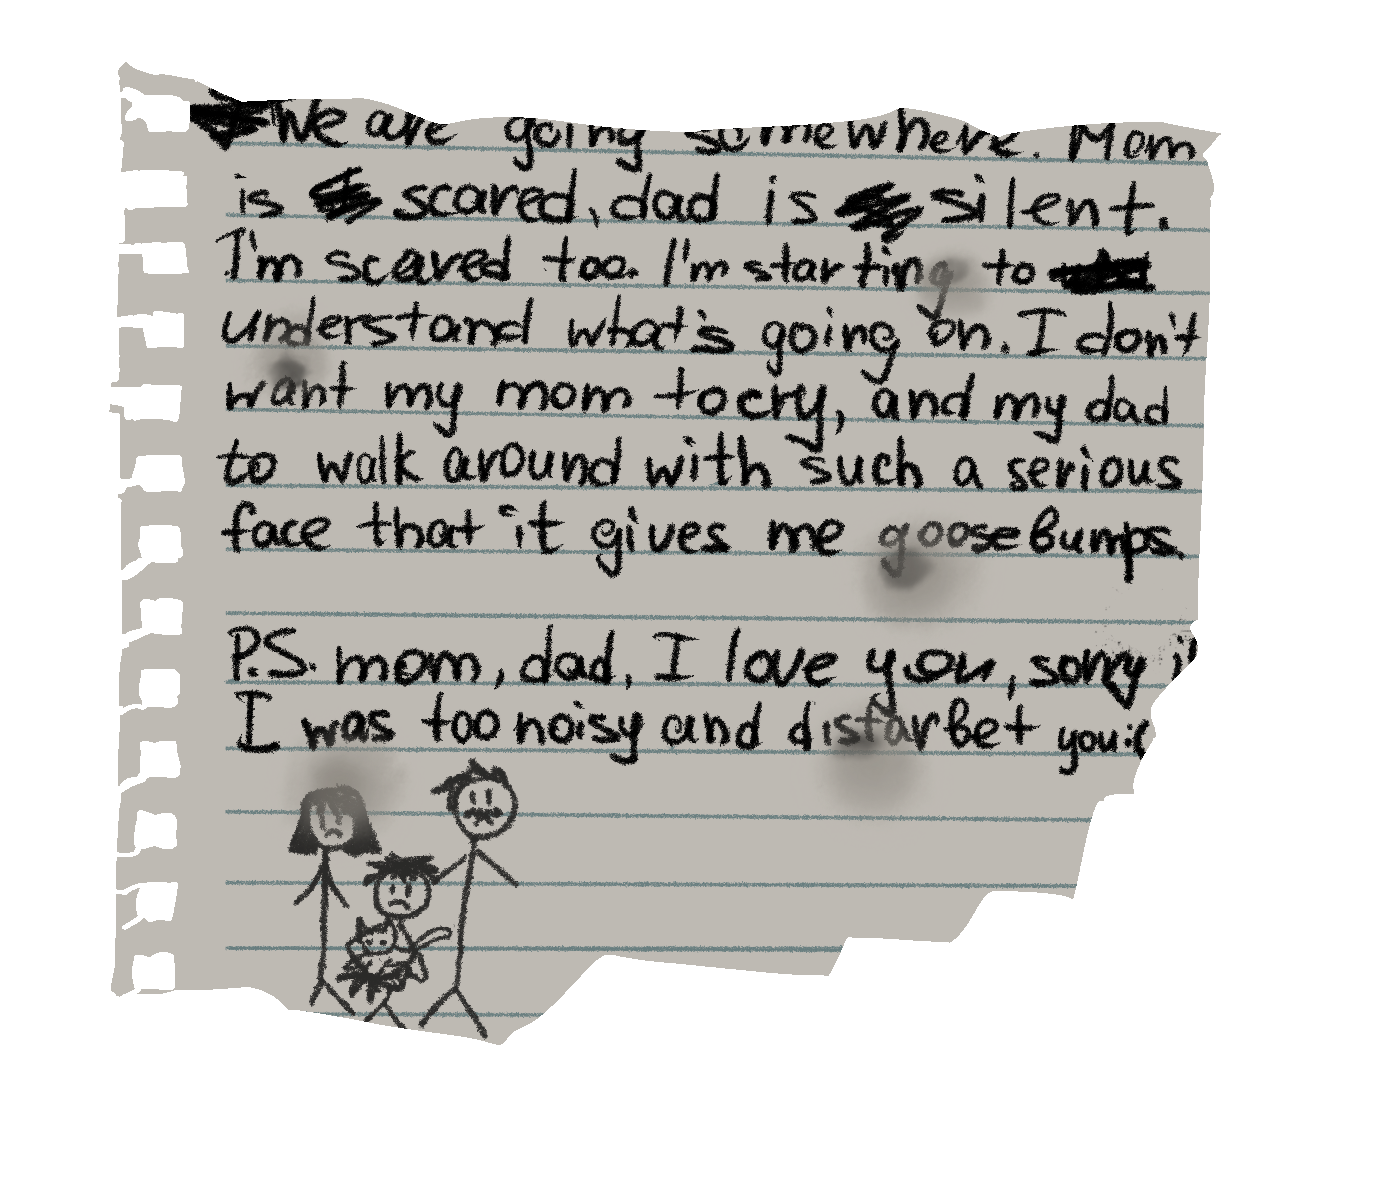 We are going somewhere. Mom
is scared, dad is silent.
I'm scared too. I'm starting to
understand what's going on. I don't
want my mom to cry, and my dad
to walk around with such a serious
face that it gives me goosebumps.
P.S. mom, dad, I love you, sorry if
I was too noisy and distarbet you:(